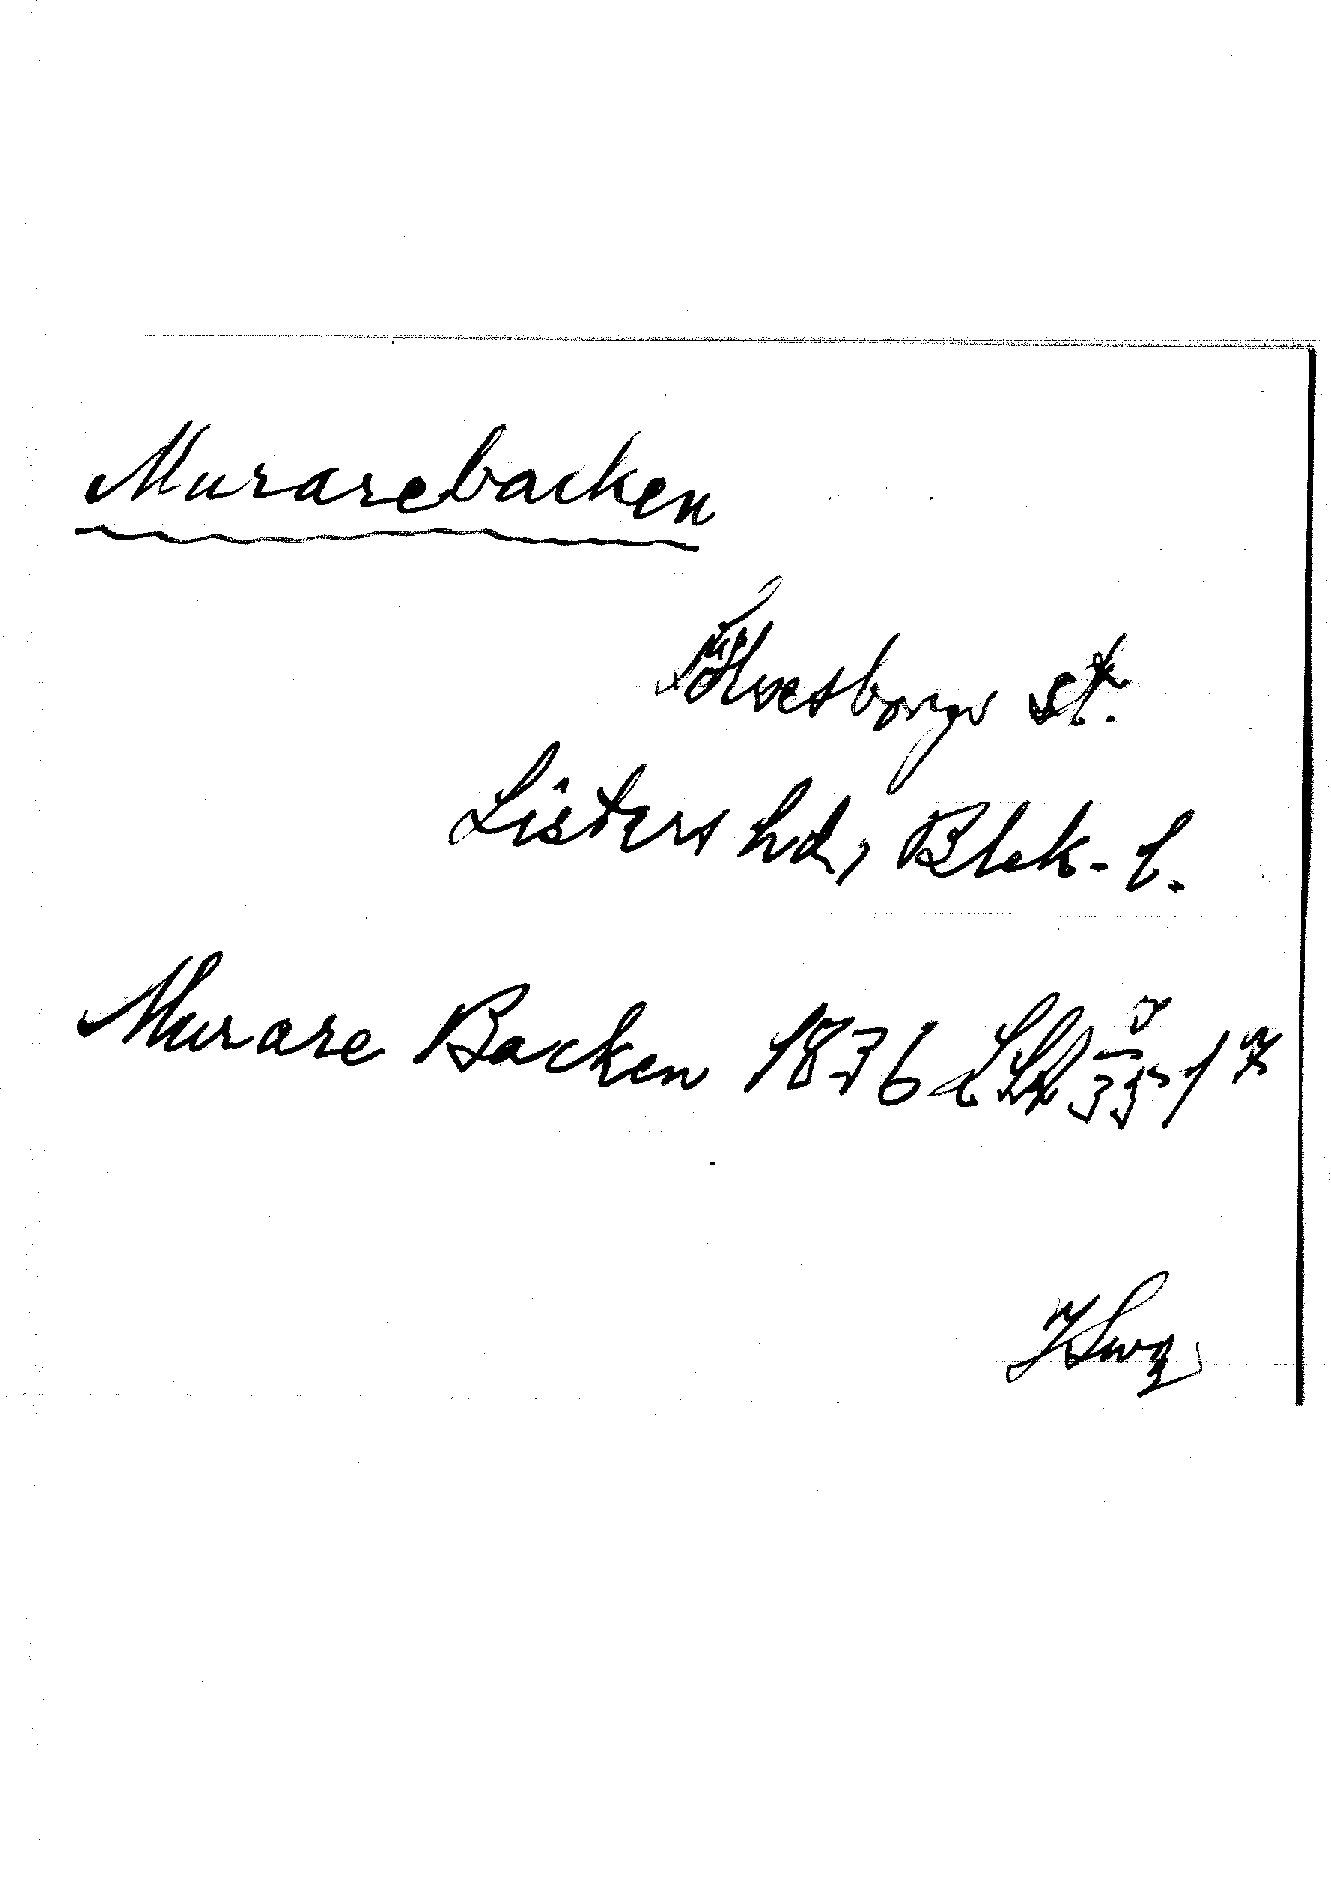 Murarebacken
Sölvesborgs st.
Listers hd, Blek. l.
Murare Backen 1876